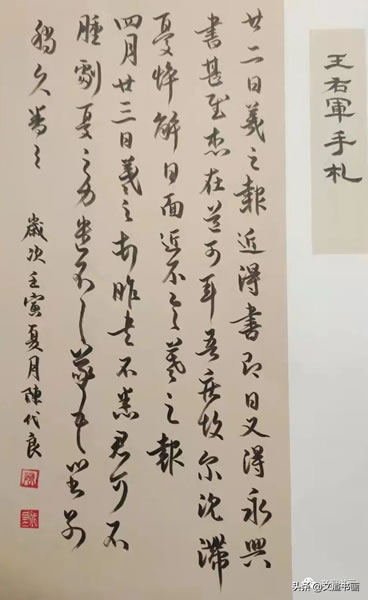 王右軍手札
廿二日羲之報近得書即日又得永興
書甚慰想在道可耳吾疾故尔沈滯
憂悴解日面近不具羲之報
四月廿三日羲之昨書不悉君可不
腫劇憂之力遣不
歲次壬寅夏月陳代良
头条